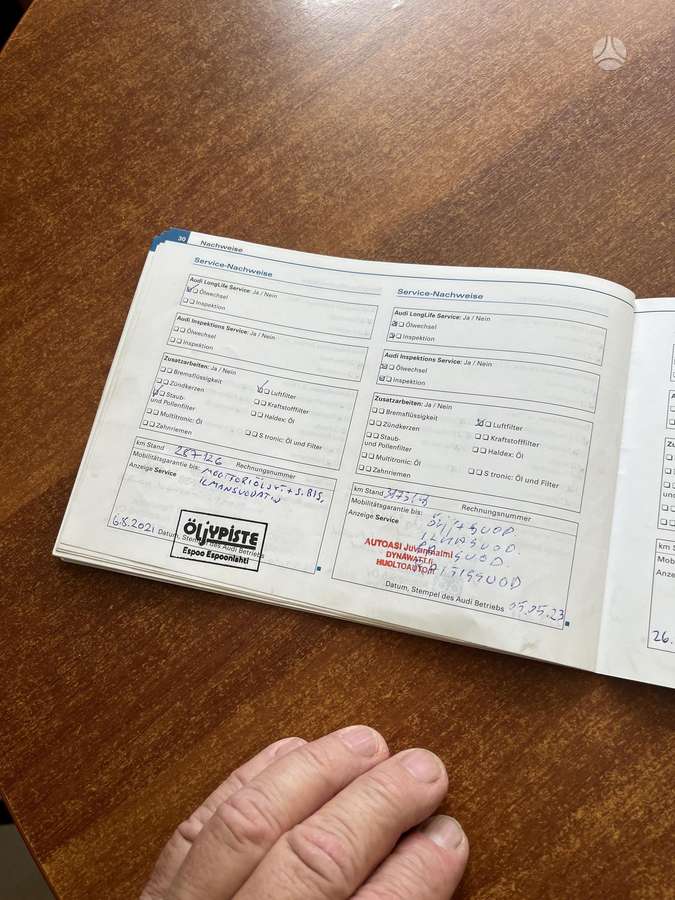 30
Nachweise
Service-Nachweise
Audi LongLife Service: Ja / Nein
Ölwechsel
Inspektion
Audi Inspektions Service: Ja / Nein
Ölwechsel
Inspektion
Zusatzarbeiten: Ja / Nein
Bremsflüssigkeit
Zündkerzen
Staub-
und Pollenfilter
Multitronic: Öl
Zahnriemen
Luftfilter
Kraftstofffilter
Haldex: Öl
S tronic: Öl und Filter
km Stand 287126 Rechnungsnummer
Mobilitätsgarantie bis: MOOTTORIÖLJYT + S. BIS,
Anzeige Service ILMANSUODATIN
6.8.2021 Datum, Stempel des Audi Betriebs
ÖLJYPISTE
Espoo Espoonlahti
Service-Nachweise
Audi LongLife Service: Ja / Nein
Ölwechsel
Inspektion
Audi Inspektions Service: Ja / Nein
Ölwechsel
Inspektion
Zusatzarbeiten: Ja / Nein
Bremsflüssigkeit
Zündkerzen
Staub-
und Pollenfilter
Multitronic: Öl
Zahnriemen
Luftfilter
Kraftstofffilter
Haldex: Öl
S tronic: Öl und Filter
km Stand Rechnungsnummer
Mobilitätsgarantie bis:
Anzeige Service
ÖLJY + SUOD
ILMANSUOD.
SUOD.
AUTOASI Juvanmalmi
DYNAWATT.fi
HUOLTOAUTO.fi
Datum, Stempel des Audi Betriebs 05.05.23
km S
Mob
Anze
26.